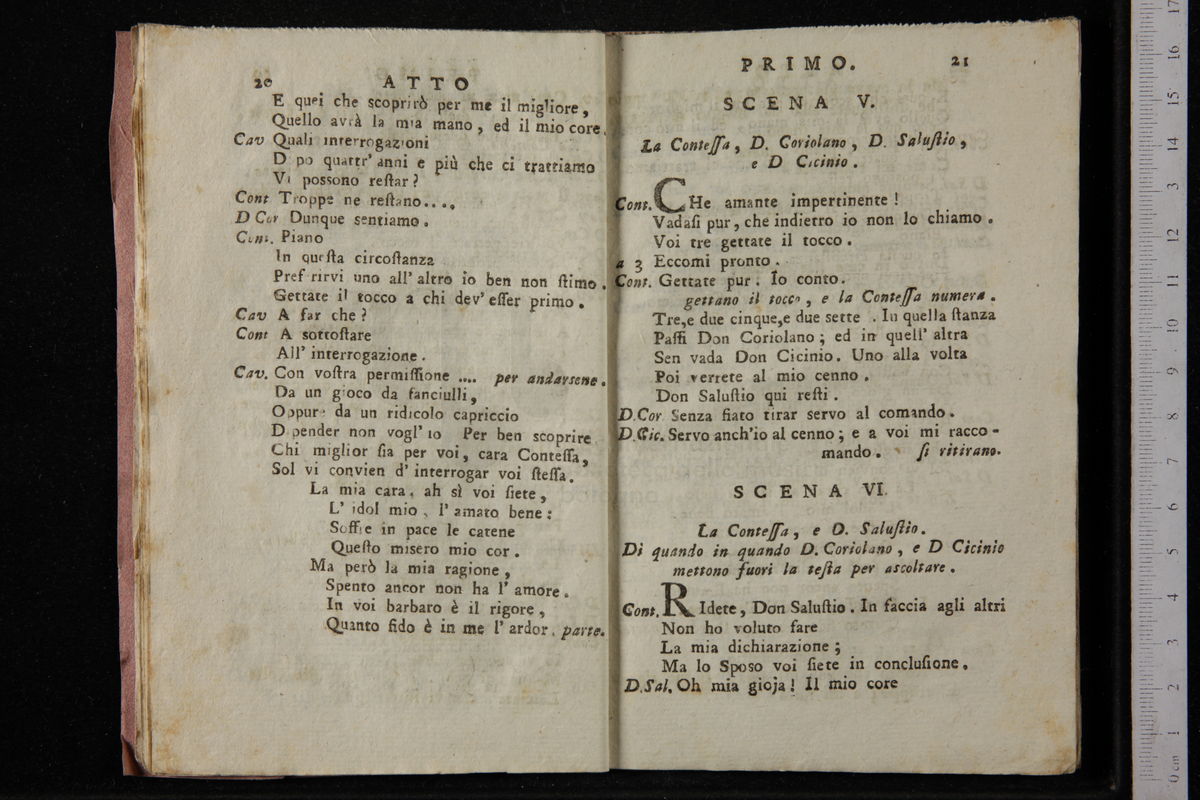 20 ATTO
E quei che scoprirò per me il migliore,
Quello avrà la mia mano, ed il mio core.
Cav Quali interrogazioni
D po quattr' anni e più che ci trattiamo
Vi possono reſtar?
Cont Troppe ne reſtano....
D Cor Dunque sentiamo.
Cont. Piano
In queſta circoſtanza
Pref rirvi uno all' altro io ben non ſtimo.
Gettate il tocco a chi dev' eſſer primo.
Cav A far che?
Cont A sottoſtare
All' interrogazione.
Cav. Con voſtra permiſſione .... per andarsene.
Da un gioco da fanciulli,
Oppure da un ridicolo capriccio
D pender non vogl' io Per ben scoprire
Chi miglior ſia per voi, cara Conteſſa,
Sol vi convien d' interrogar voi ſteſſa.
La mia cara, ah sì voi ſiete,
L' idol mio, l' amato bene:
Soffre in pace le catene
Queſto misero mio cor.
Ma però la mia ragione,
Spento ancor non ha l' amore.
In voi barbaro è il rigore,
Quanto fido è in me l' ardor. parte.
PRIMO. 21
SCENA V.
La Conteſſa, D. Coriolano, D. Saluſtio,
e D Cicinio.
Cont. CHe amante impertinente!
Vadaſi pur, che indietro io non lo chiamo.
Voi tre gettate il tocco.
a 3 Eccomi pronto.
Cont. Gettate pur: Io conto.
gettano il tocco, e la Conteſſa numera.
Tre,e due cinque,e due sette. In quella ſtanza
Paſſi Don Coriolano; ed in quell' altra
Sen vada Don Cicinio. Uno alla volta
Poi verrete al mio cenno.
Don Saluſtio qui reſti.
D.Cor Senza fiato tirar servo al comando.
D.Cic. Servo anch'io al cenno; e a voi mi racco-
mando. ſi ritirano.
SCENA VI.
La Conteſſa, e D. Saluſtio.
Di quando in quando D. Coriolano, e D Cicinio
mettono fuori la teſta per ascoltare.
Cont. RIdete, Don Saluſtio. In faccia agli altri
Non ho voluto fare
La mia dichiarazione;
Ma lo Sposo voi ſiete in concluſione.
D.Sal. Oh mia gioja! Il mio core
0 cm 1 2 3 4 5 6 7 8 9 10 11 12 13 14 15 16 17